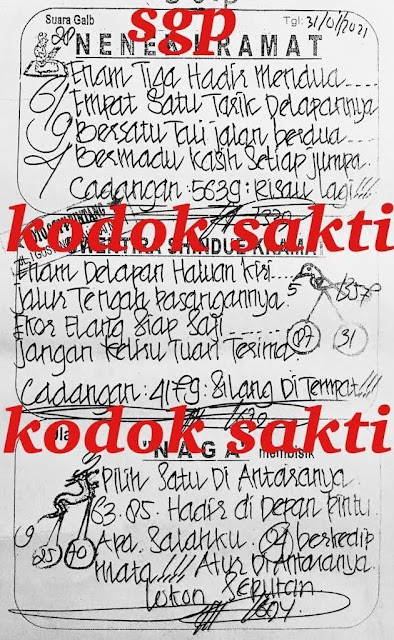 Suara Galb
Tgl: 31/01/2021
sgp
NENEK KRAMAT
Enam Tiga Hadir Mendua....
Empat Satu Tarik Delapannya
Bersatu Tuju jalan berdua....
Bermadu Kasih Setiap jumpa.
Cadangan: 5639: Risau Lagi!!!
kodok sakti
Enam Delapan Haluan Kiri....
Jalur Tengah Pasangannya.
5
1357
Ekor Elang Siap Saji....
07
31
Jangan Keliru Tuan Terima
Cadangan: 4179: Silang Di Tempat!!!
kodok sakti
"NAGA" membisik
Pilih Satu Di Antaranya.
63.85. Hadir di Depan Pintu.
9
Apa Salahku. 04 berkedip
25
40
mata!!!! Atur Di Antaranya.